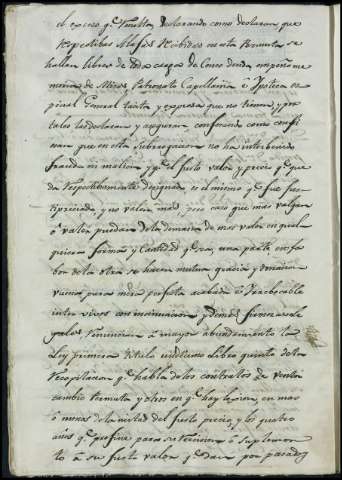 el exceso q.e declarando como declaran, que
respectibas Alajas recibidas en esta Permuta se
hallan libres de toda carga de Censo deuda empeño me
moria de Misas Patronato Capellania é Ipoteca es
pecial General tacita y expresa que no tienen, y por
tales las declaran y aseguran confesando como confie
san que en esta Subrogacion no ha interbenido
fraude ni malicia y q.e el justo valor y precio q.e que
da respectibamente designado es el mismo q.e fue Jus
tipreciado, y no valen mas, pero caso que mas valgan
ó valer puedan de la demasia de mas valor en qual
quiera forma y Cantidad q.e sea, una parte en fa
bor de la otra se hacen mutua gracia y donacion
pura mera perfecta acabada é irrebocable
inter vivos con insinuacion y demas firmezas le
gales renuncian á mayor abundamiento la
Ley primera titulo undecimo Libro quinto de la
Recopilacion q.e habla de los contratos de venta
cambio Permuta y otros en q.e hay lesion en mas
ó menos de la mitad del justo precio, y los quatro
años q.e prefine para su rescision ó suplemen
to á su justo valor y dan por pasados